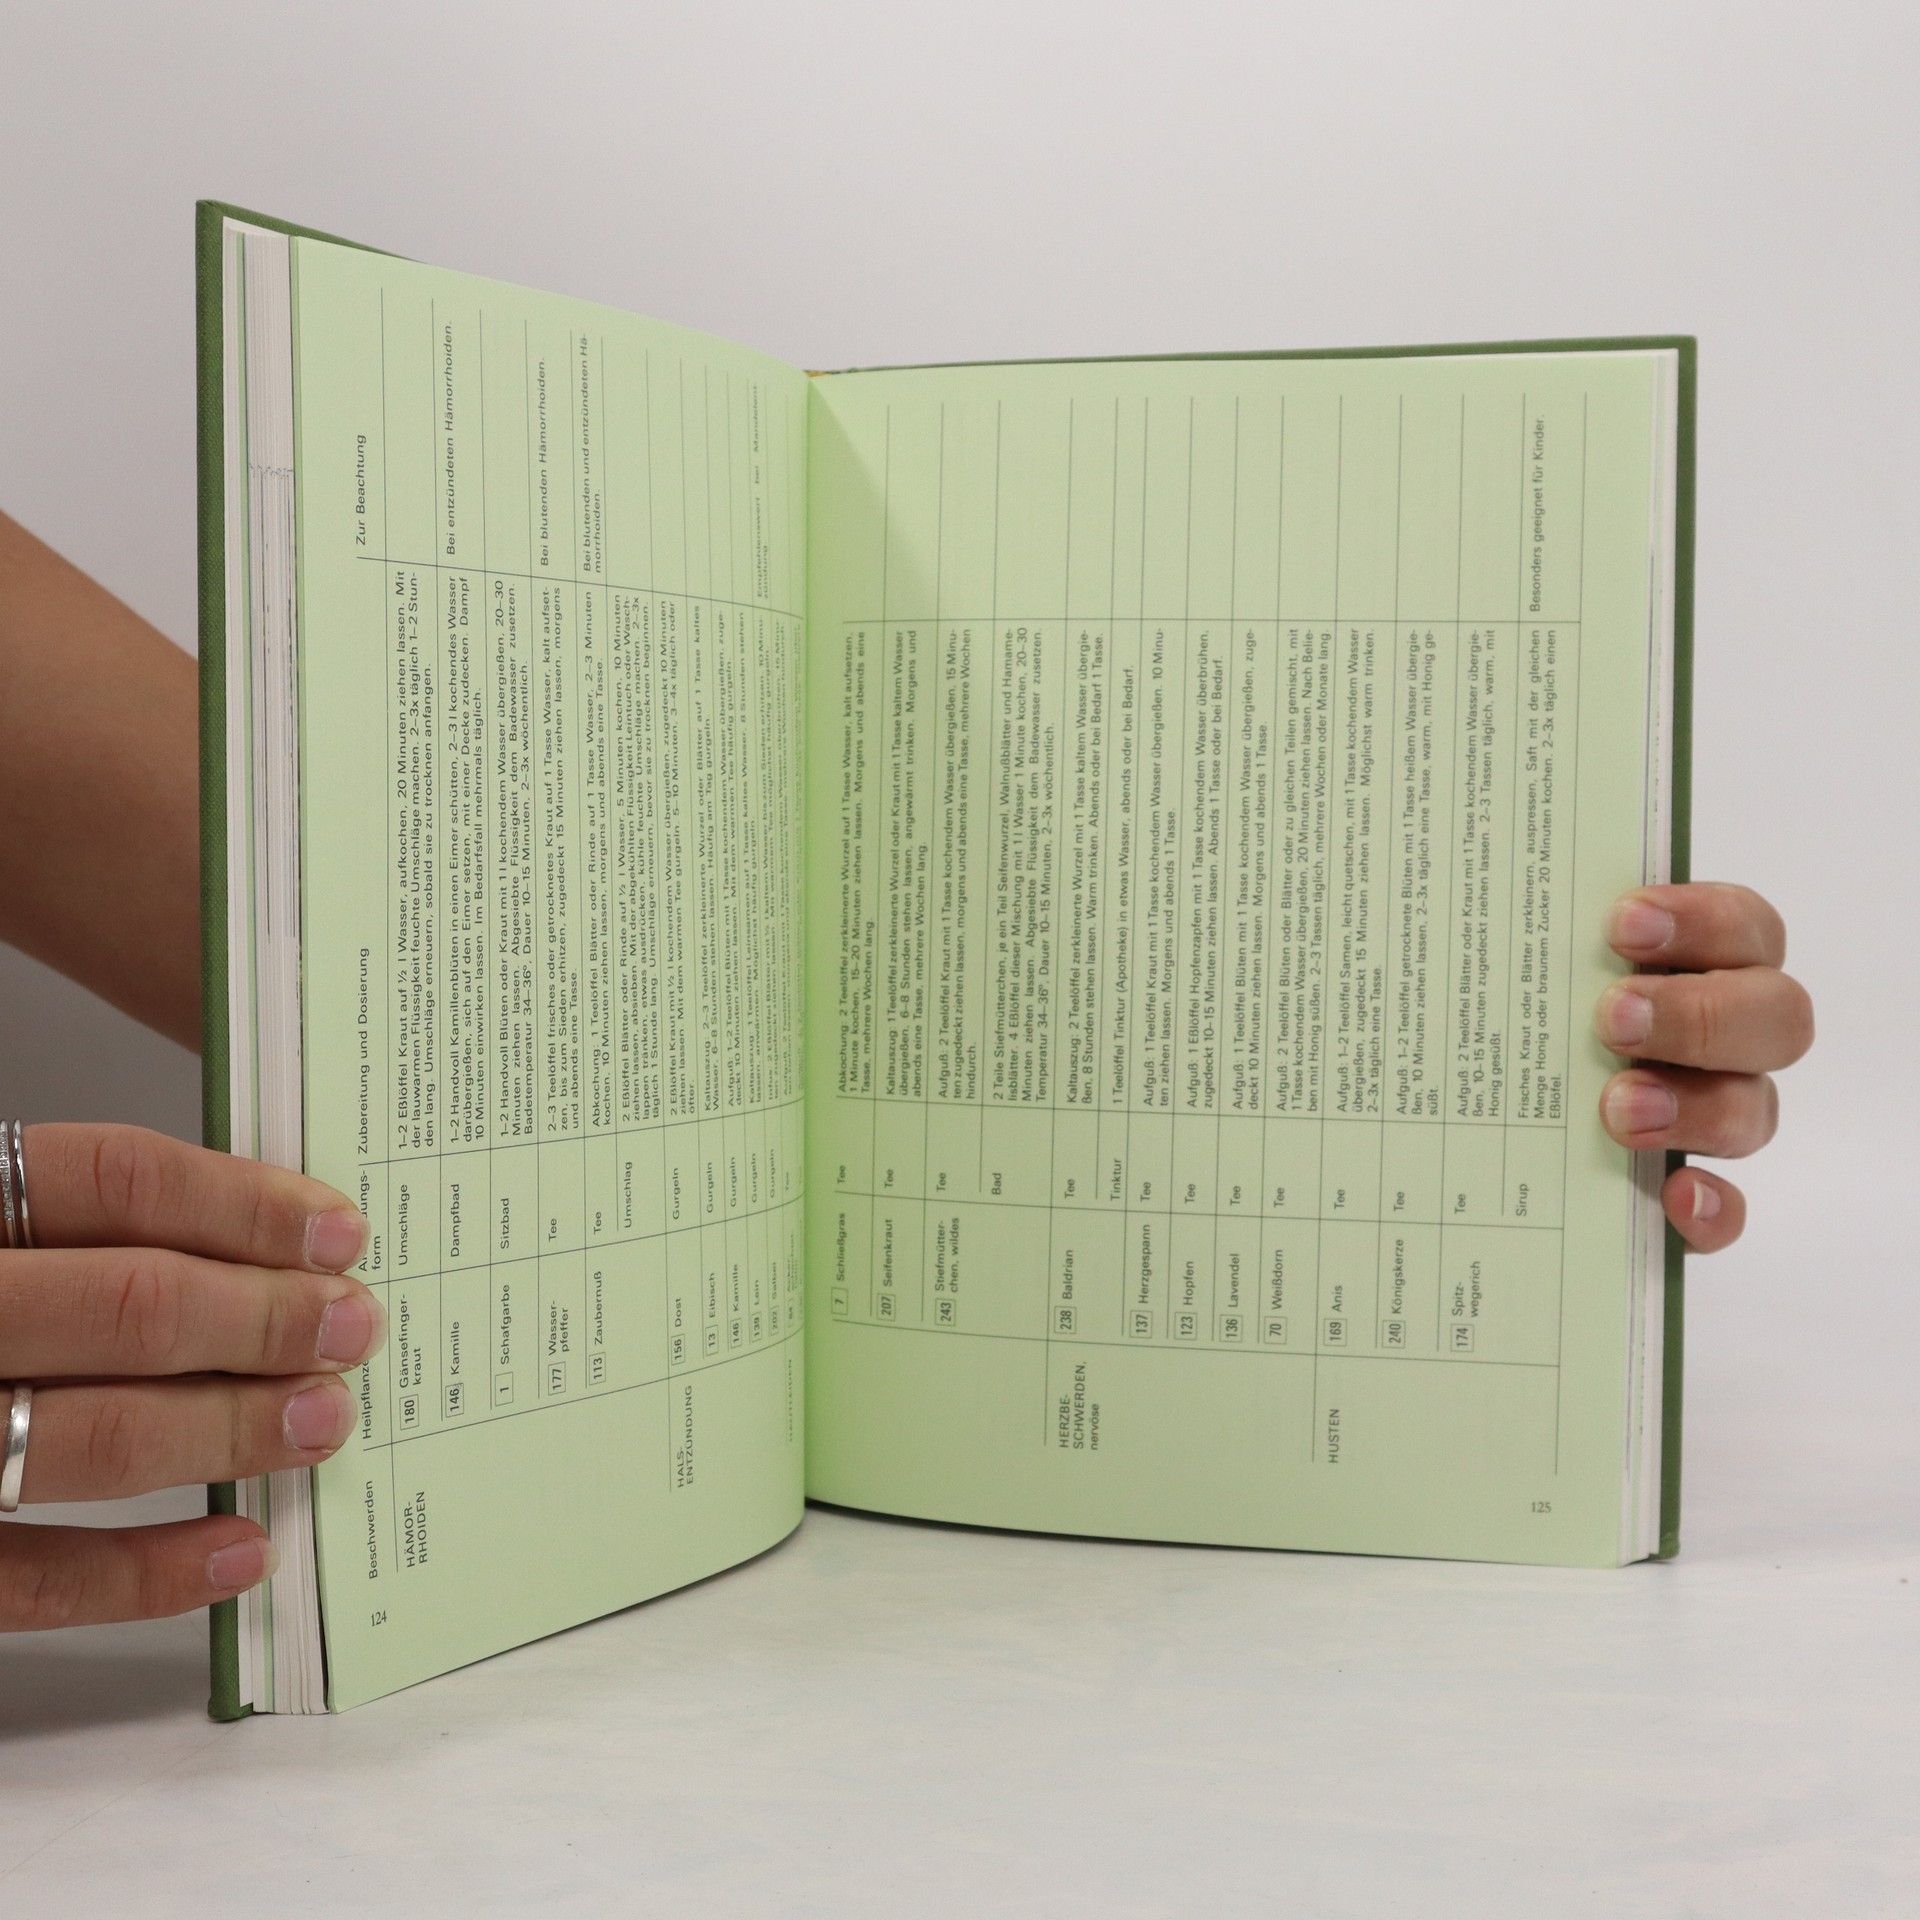 124
Beschwerden
Heilpflanze
form
Zubereitung und Dosierung
Zur Beachtung
HÄMOR-
RHOIDEN
180 Gänsefinger-
kraut
Umschläge
1–2 Eßlöffel Kraut auf ½ l Wasser, aufkochen, 20 Minuten ziehen lassen. Mit
der lauwarmen Flüssigkeit feuchte Umschläge machen. 2–3x täglich 1–2 Stun-
den lang. Umschläge erneuern, sobald sie zu trocknen anfangen.
146 Kamille
Dampfbad
1–2 Handvoll Kamillenblüten in einen Eimer schütten, 2–3 l kochendes Wasser
darübergießen, sich auf den Eimer setzen, mit einer Decke zudecken. Dampf
10 Minuten einwirken lassen. Im Bedarfsfall mehrmals täglich.
Bei entzündeten Hämorrhoiden.
1 Schafgarbe
Sitzbad
1–2 Handvoll Blüten oder Kraut mit 1 l kochendem Wasser übergießen, 20–30
Minuten ziehen lassen. Abgesiebte Flüssigkeit dem Badewasser zusetzen.
Badetemperatur 34–36°, Dauer 10–15 Minuten, 2–3x wöchentlich.
177 Wasser-
pfeffer
Tee
2–3 Teelöffel frisches oder getrocknetes Kraut auf 1 Tasse Wasser, kalt aufset-
zen, bis zum Sieden erhitzen, zugedeckt 15 Minuten ziehen lassen, morgens
und abends eine Tasse.
Bei blutenden Hämorrhoiden.
113 Zaubernuß
Tee
Abkochung: 1 Teelöffel Blätter oder Rinde auf 1 Tasse Wasser, 2–3 Minuten
kochen, 10 Minuten ziehen lassen, morgens und abends eine Tasse.
Bei blutenden und entzündeten Hä-
morrhoiden.
Umschlag
2 Eßlöffel Blätter oder Rinde auf ½ l Wasser, 5 Minuten kochen, 10 Minuten
ziehen lassen, absieben. Mit der abgekühlten Flüssigkeit Leintuch oder Wasch-
lappen tränken, etwas ausdrücken, kühle feuchte Umschläge machen. 2–3x
täglich 1 Stunde lang. Umschläge erneuern, bevor sie zu trocknen beginnen.
HALS-
ENTZÜNDUNG
156 Dost
Gurgeln
2 Eßlöffel Kraut mit ½ l kochendem Wasser übergießen, zugedeckt 10 Minuten
ziehen lassen. Mit dem warmen Tee gurgeln. 5–10 Minuten, 3–4x täglich oder
öfter.
13 Eibisch
Gurgeln
Kaltauszug: 2–3 Teelöffel zerkleinerte Wurzel oder Blätter auf 1 Tasse kaltes
Wasser, 6–8 Stunden stehen lassen. Häufig am Tag gurgeln.
146 Kamille
Gurgeln
Aufguß: 1–2 Teelöffel Blüten mit 1 Tasse kochendem Wasser übergießen, zuge-
deckt 10 Minuten ziehen lassen. Mit dem warmen Tee häufig gurgeln.
139 Lein
Gurgeln
Kaltauszug: 1 Teelöffel Leinsamen auf 1 Tasse kaltes Wasser, 8 Stunden stehen
lassen, anwärmen. Möglichst häufig gurgeln.
202 Salbei
Gurgeln
7 Schließgras
Tee
Abkochung: 2 Teelöffel zerkleinerte Wurzel auf 1 Tasse Wasser, kalt aufsetzen,
1 Minute kochen, 15–20 Minuten ziehen lassen. Morgens und abends eine
Tasse, mehrere Wochen lang.
207 Seifenkraut
Tee
Kaltauszug: 1 Teelöffel zerkleinerte Wurzel oder Kraut mit 1 Tasse kaltem Wasser
übergießen, 6–8 Stunden stehen lassen, angewärmt trinken. Morgens und
abends eine Tasse, mehrere Wochen lang.
243 Stiefmütter-
chen, wildes
Tee
Aufguß: 2 Teelöffel Kraut mit 1 Tasse kochendem Wasser übergießen, 15 Minu-
ten zugedeckt ziehen lassen, morgens und abends eine Tasse, mehrere Wochen
hindurch.
Bad
2 Teile Stiefmütterchen, je ein Teil Seifenwurzel, Walnußblätter und Hamame-
lisblätter. 4 Eßlöffel dieser Mischung mit 1 l Wasser 1 Minute kochen, 20–30
Minuten ziehen lassen. Abgesiebte Flüssigkeit dem Badewasser zusetzen.
Temperatur 34–36°, Dauer 10–15 Minuten, 2–3x wöchentlich.
HERZBE-
SCHWERDEN,
nervöse
238 Baldrian
Tee
Kaltauszug: 2 Teelöffel zerkleinerte Wurzel mit 1 Tasse kaltem Wasser übergie-
ßen, 8 Stunden stehen lassen. Warm trinken. Abends oder bei Bedarf 1 Tasse.
Tinktur
1 Teelöffel Tinktur (Apotheke) in etwas Wasser, abends oder bei Bedarf.
137 Herzgespann
Tee
Aufguß: 1 Teelöffel Kraut mit 1 Tasse kochendem Wasser übergießen. 10 Minu-
ten ziehen lassen. Morgens und abends 1 Tasse.
123 Hopfen
Tee
Aufguß: 1 Eßlöffel Hopfenzapfen mit 1 Tasse kochendem Wasser überbrühen,
zugedeckt 10–15 Minuten ziehen lassen. Abends 1 Tasse oder bei Bedarf.
136 Lavendel
Tee
Aufguß: 1 Teelöffel Blüten mit 1 Tasse kochendem Wasser übergießen, zuge-
deckt 10 Minuten ziehen lassen. Morgens und abends 1 Tasse.
70 Weißdorn
Tee
Aufguß: 2 Teelöffel Blüten oder Blätter oder zu gleichen Teilen gemischt, mit
1 Tasse kochendem Wasser übergießen, 20 Minuten ziehen lassen. Nach Belie-
ben mit Honig süßen. 2–3 Tassen täglich, mehrere Wochen oder Monate lang
HUSTEN
169 Anis
Tee
Aufguß: 1–2 Teelöffel Samen, leicht quetschen, mit 1 Tasse kochendem Wasser
übergießen, zugedeckt 15 Minuten ziehen lassen. Möglichst warm trinken.
2–3x täglich eine Tasse.
240 Königskerze
Tee
Aufguß: 1–2 Teelöffel getrocknete Blüten mit 1 Tasse heißem Wasser übergie-
ßen, 10 Minuten ziehen lassen, 2–3x täglich eine Tasse, warm, mit Honig ge-
süßt.
174 Spitz-
wegerich
Tee
Aufguß: 2 Teelöffel Blätter oder Kraut mit 1 Tasse kochendem Wasser übergie-
ßen, 10–15 Minuten zugedeckt ziehen lassen. 2–3 Tassen täglich, warm, mit
Honig gesüßt.
Sirup
Frisches Kraut oder Blätter zerkleinern, auspressen, Saft mit der gleichen
Menge Honig oder braunem Zucker 20 Minuten kochen. 2–3x täglich einen
Eßlöffel.
Besonders geeignet für Kinder.
125